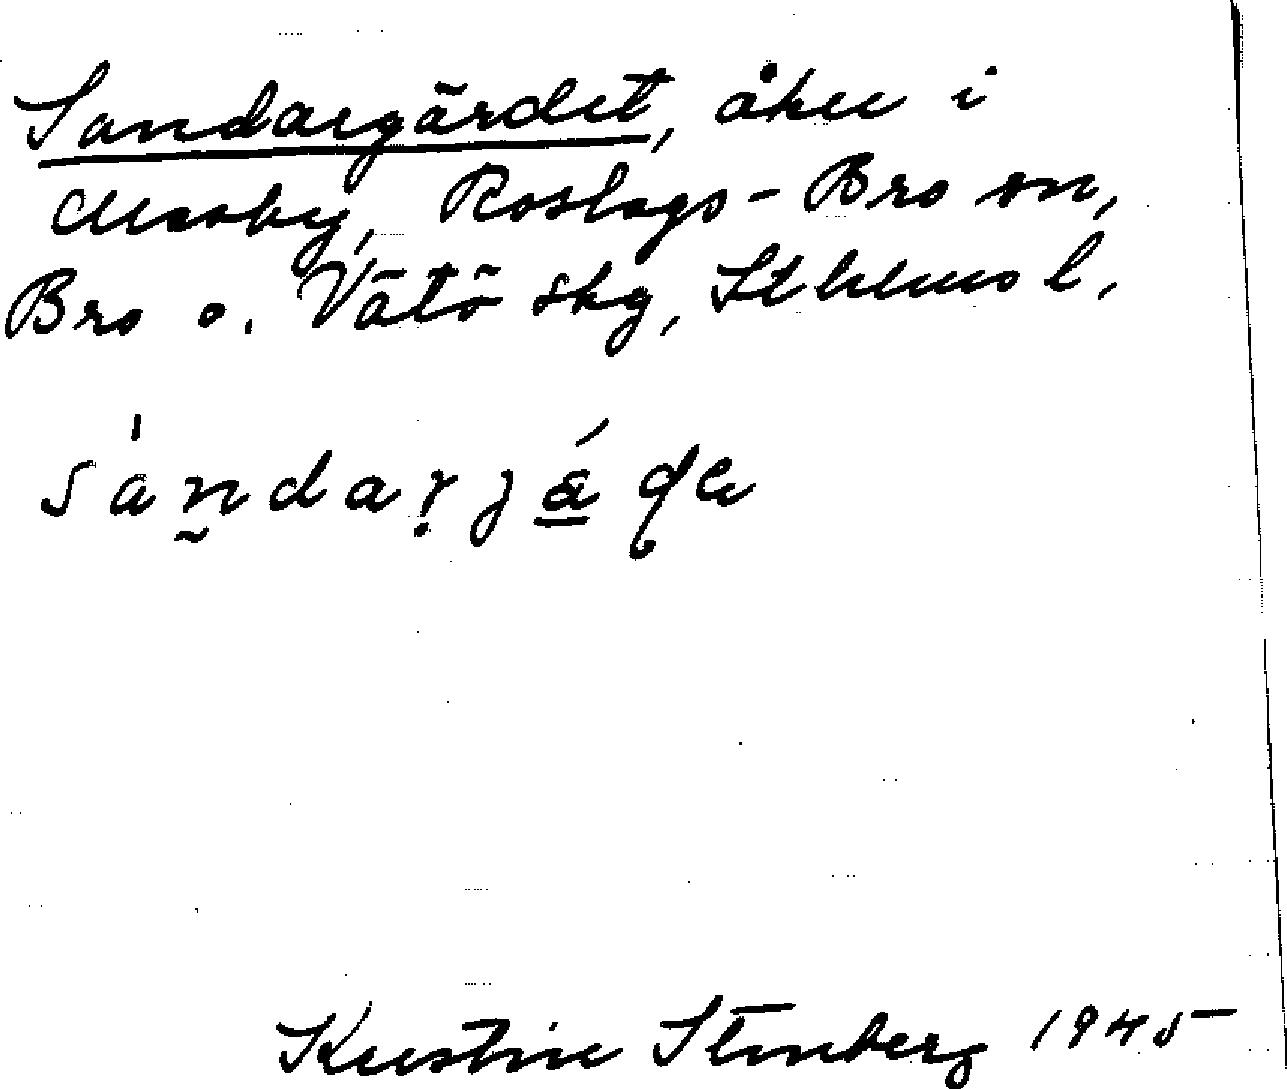 Sandargärdet, åker i
Mossby, Roslags-Bro sn,
Bro o. Vätö skg, Sthlms l.
sàn̰darjá̱ɖe
Kerstin Stenberg 1945